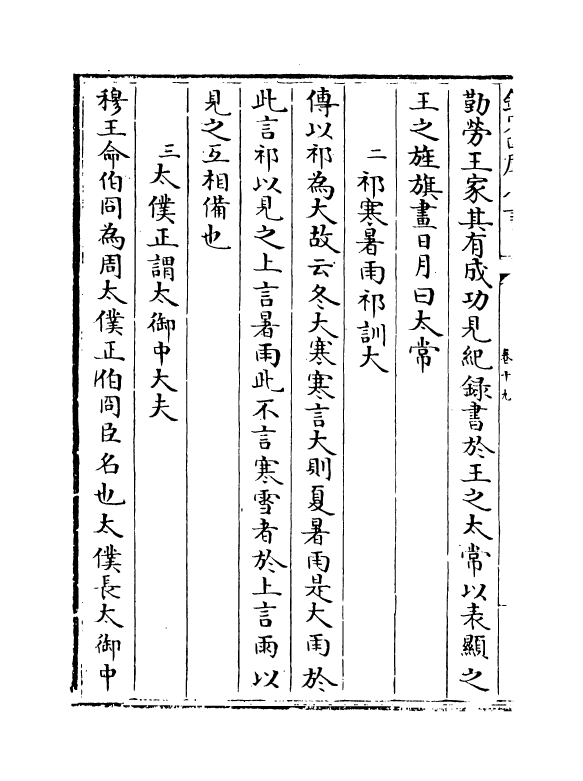 勤勞王家其有成功見紀録書於王之太常以表顯之
王之旌旗畫日月曰太常
二祁寒暑雨祁訓大
傳以祁為大故云冬大寒寒言大則夏暑雨是大雨於
此言祁以見之上言暑雨此不言寒雪者於上言雨以
見之互相備也
三太僕正謂太御中大夫
穆王命伯冏為周太僕正伯冏臣名也太僕長太御中
卷十九